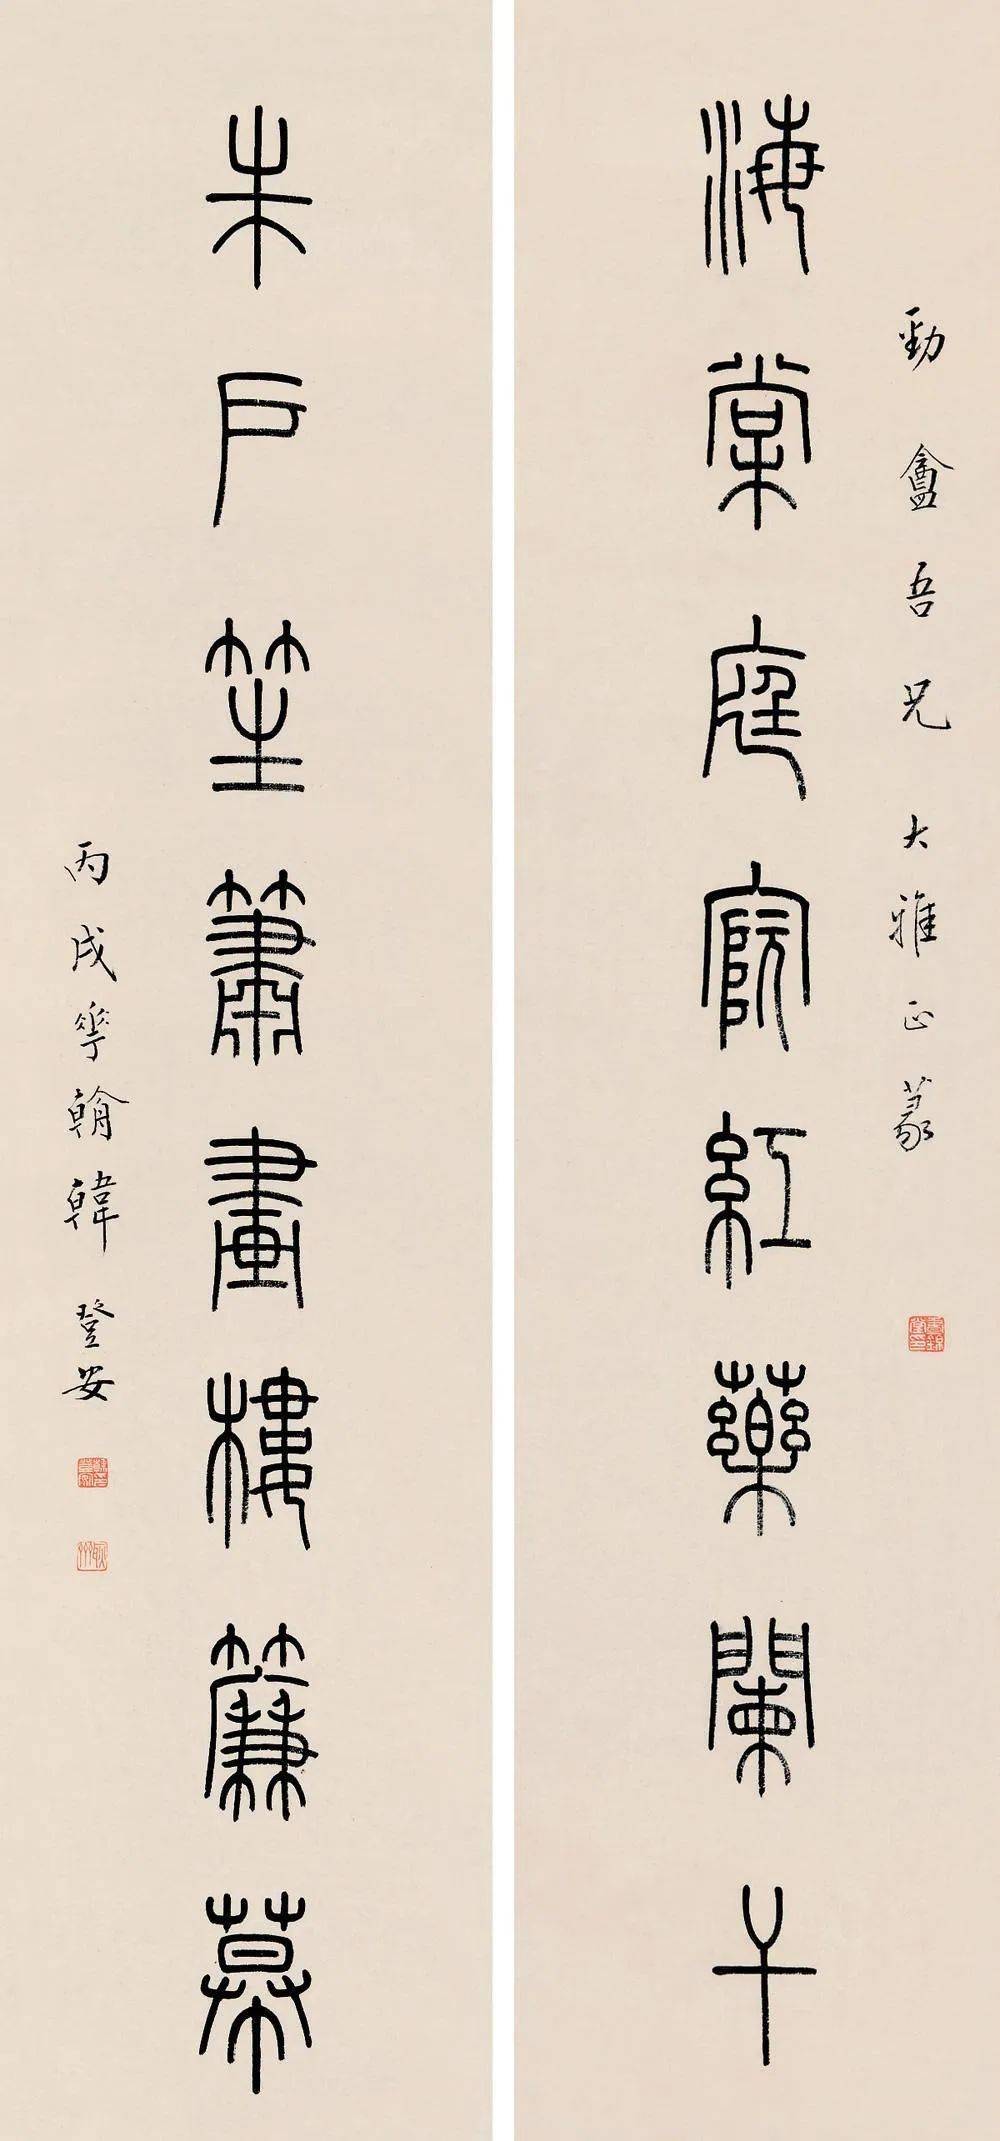 勁盦吾兄大雅正篆
海棠庭院紅藥闌干
朱戶笙簫畫樓簾幕
丙戌華朝韓登安